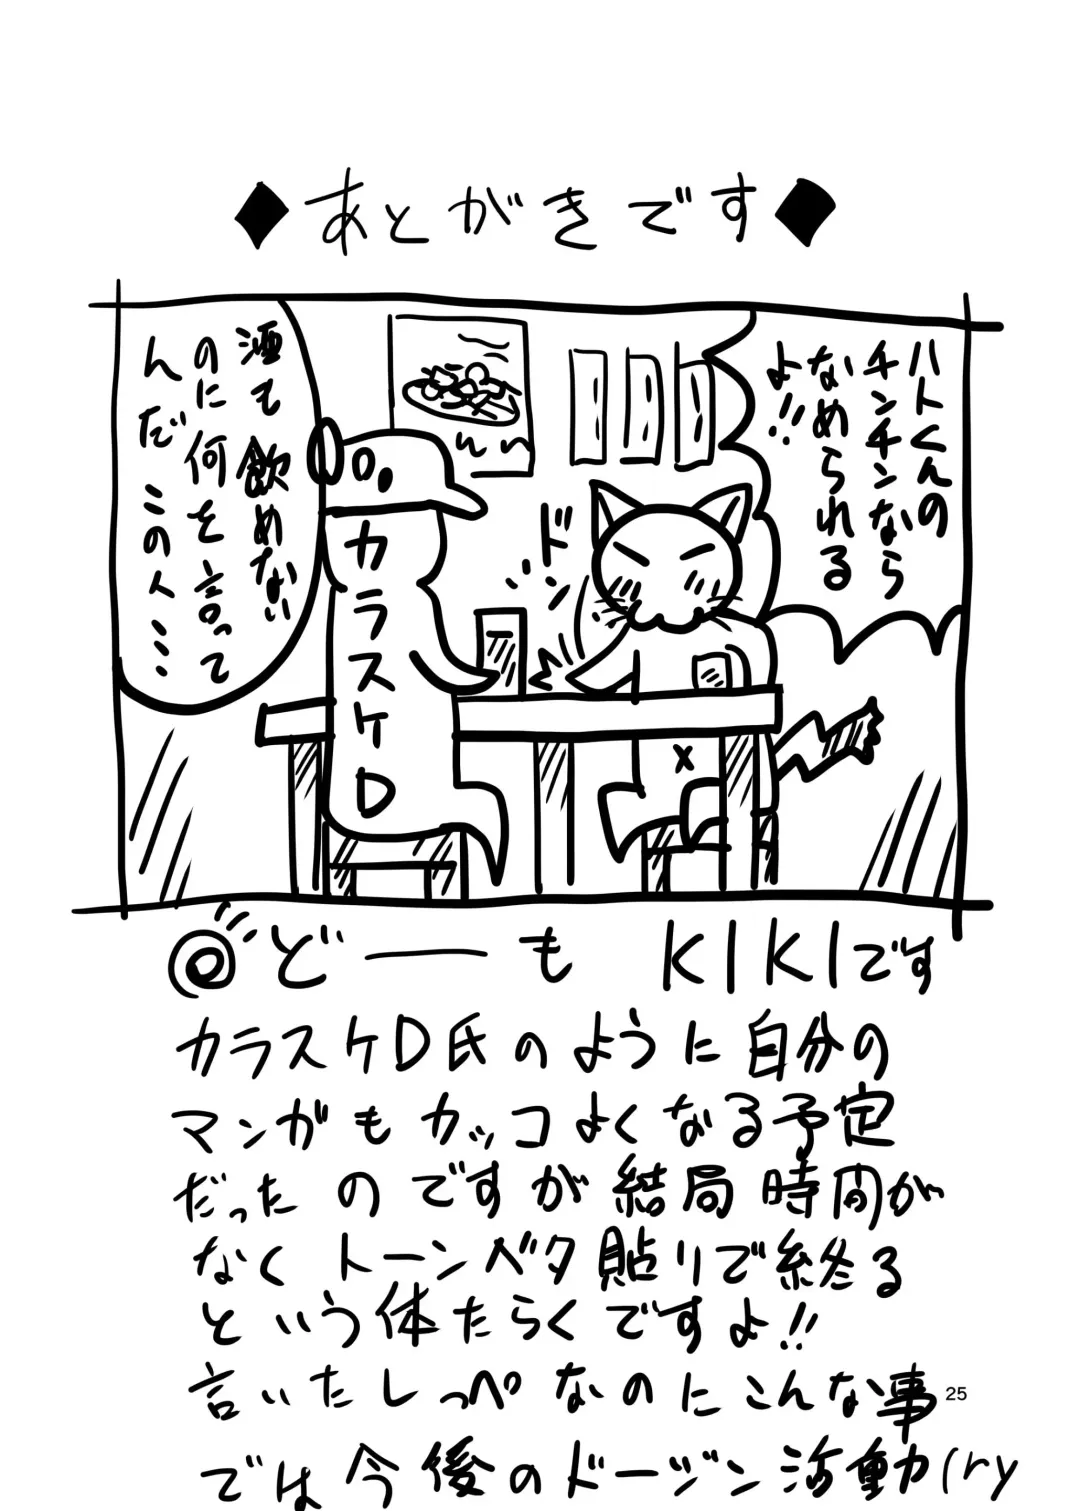 ◆あとがきです◆
ハトくんの
チンチンなら
なめられる
よ!!
ドン
酒も飲めない
のに何を言って
んだこの人…
カラスケD
◎どーーも KIKIです
カラスケD氏のように自分の
マンガもカッコよくなる予定
だったのですが結局時間が
なくトーンベタ貼りで終る
という体たらくですよ!!
言いたしっぺなのにこんな事
では今後のドージン活動(ry
25